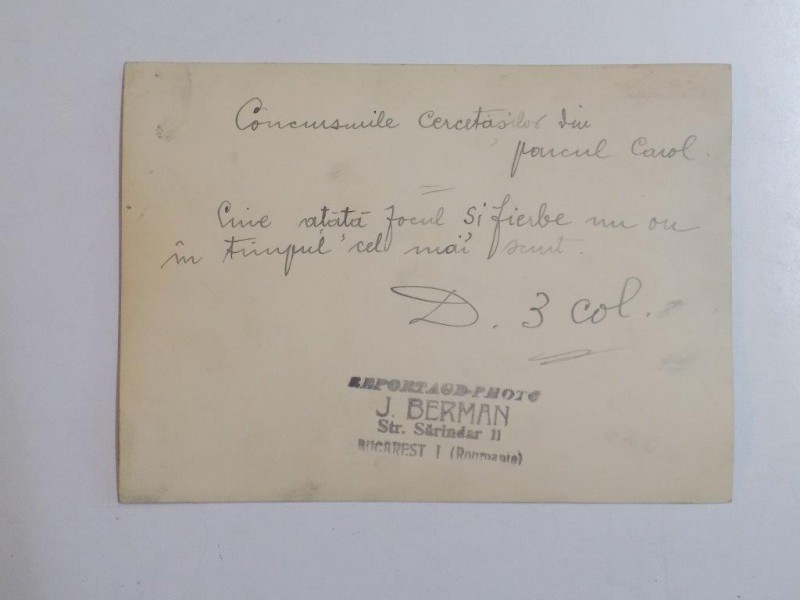 Concursurile cercetașilor din
parcul Carol.
Cine ațâță focul și fierbe un ou
în timpul cel mai scurt.
D. 3 col.
REPORTAGE-PHOTO
J. BERMAN
Str. Sărindar 11
BUCAREST I (Roumanie)